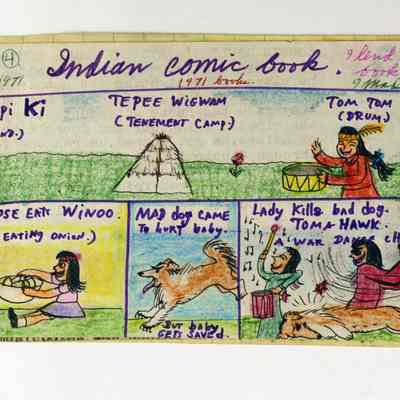 4
Indian comic book.
1971 books.
1971
I lend
book
pi Ki
TEPEE WIGWAM
(TENEMENT CAMP.)
TOM TOM
(DRUM)
OSE EATS WINOO.
EATING ONION.)
MAD dog CAME
TO hurt baby.
BUT baby
GETS SAVED.
Lady Kills bad dog.
TOMA-HAWK.
WAR DANCE